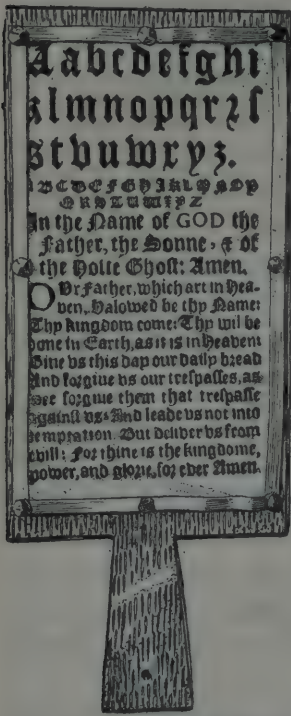 Aabcdefghi
klmnopqrꝛſ
stvuwxyz.
ABCDEFGHIKLMNOP
QRSTUWXYZ
In the Name of GOD the
Father, the Sonne, & of
the Holie Ghoſt: Amen.
OVr Father, which art in Hea-
uen, Halowed be thy Name:
Thy kingdom come: Thy wil be
done in Earth, as it is in Heauen:
Giue vs this day our daily bread
And forgiue vs our treſpaſſes, as
wee forgiue them that treſpaſſe
againſt vs: And leade vs not into
temptation. But deliuer vs from
evill: For thine is the kingdome,
power, and glorie, for ever Amen.